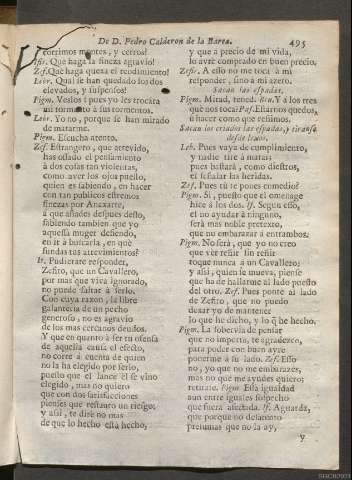 De D. Pedro Calderon de la Barca. 495
corrimos montes, y cerros!
Ifis. Que haga la fineza agravio!
Zef. Que haga quexa el rendimiento!
Lebr. Qual se han quedado los dos
elevados, y suspensos!
Pigm. Veslos pues yo les trocàra
mi tormento à sus tormentos.
Lebr. Yo no, porque se han mirado
de matarme.
Pigm. Escucha atento.
Zef. Estrangero, que atrevido,
has ossado el pensamiento
à dos cosas tan violentas,
como aver los ojos puesto,
quien es sabiendo, en hacer
con tan publicos estremos
finezas por Anaxarte,
à que añades despues desto,
sabiendo tambien que yo
aquessa muger defiendo,
en ir à buscarla, en què
fundas tus atrevimientos?
If. Pudierate responder,
Zefiro, que un Cavallero,
por mas que viva ignorado,
no puede faltar à serlo.
Con cuya razon, la libre
galanteria de un pecho
generoso, no es agravio
de los mas cercanos deudos.
Y que en quanto à ser tu ofensa
de aquessa caza el efecto,
no corre à cuenta de quien
no la ha elegido por serlo,
puesto que el lance èl se vino
elegido, mas no quiero
que con dos satisfacciones
pienses que restauro un riesgo;
y assi, te dirè no mas
de que lo hecho està hecho,
y que à precio de mi vida,
lo avrè comprado en buen precio.
Zefir. A esso no me toca à mi
responder, sino à mi azero.
Sacan las espadas.
Pigm. Mirad, tened. Bru. Y à los tres
què nos toca? Pas. Estarnos quedos,
ù hacer como que reñimos.
Sacan los criados las espadas, y tiranse
desde lexos.
Leb. Pues vaya de cumplimiento,
y nadie tire à matar:
pues bastarà, como diestros,
el señalar las heridas.
Zef. Pues tù te pones enmedio?
Pigm. Si, puesto que el omenage
hice à los dos. If. Segun esso,
el no ayudar à ninguno,
serà mas noble pretexto,
que no embarazar à entrambos.
Pigm. No serà, que yo no creo
que ver reñir sin reñir
toque nunca à un Cavallero;
y assi, quien se mueva, piense
que ha de hallarme al lado puesto
del otro. Zef. Pues ponte al lado
de Zefiro, que no puedo
dexar yo de mantener
lo que he dicho, y lo q̃ he hecho.
Pigm. La sobervia de pensar
que no importa, te agradezco,
para poder con buen ayre
ponerme à su lado. Zef. Esso
no, yo que no me embarazes,
mas no que me ayudes quiero;
retirate. Pigm. Essa igualdad
aun entre iguales sospecho
que fuera afectada. If. Aguarda,
que porque no desatento
presumas que no la ay,
y